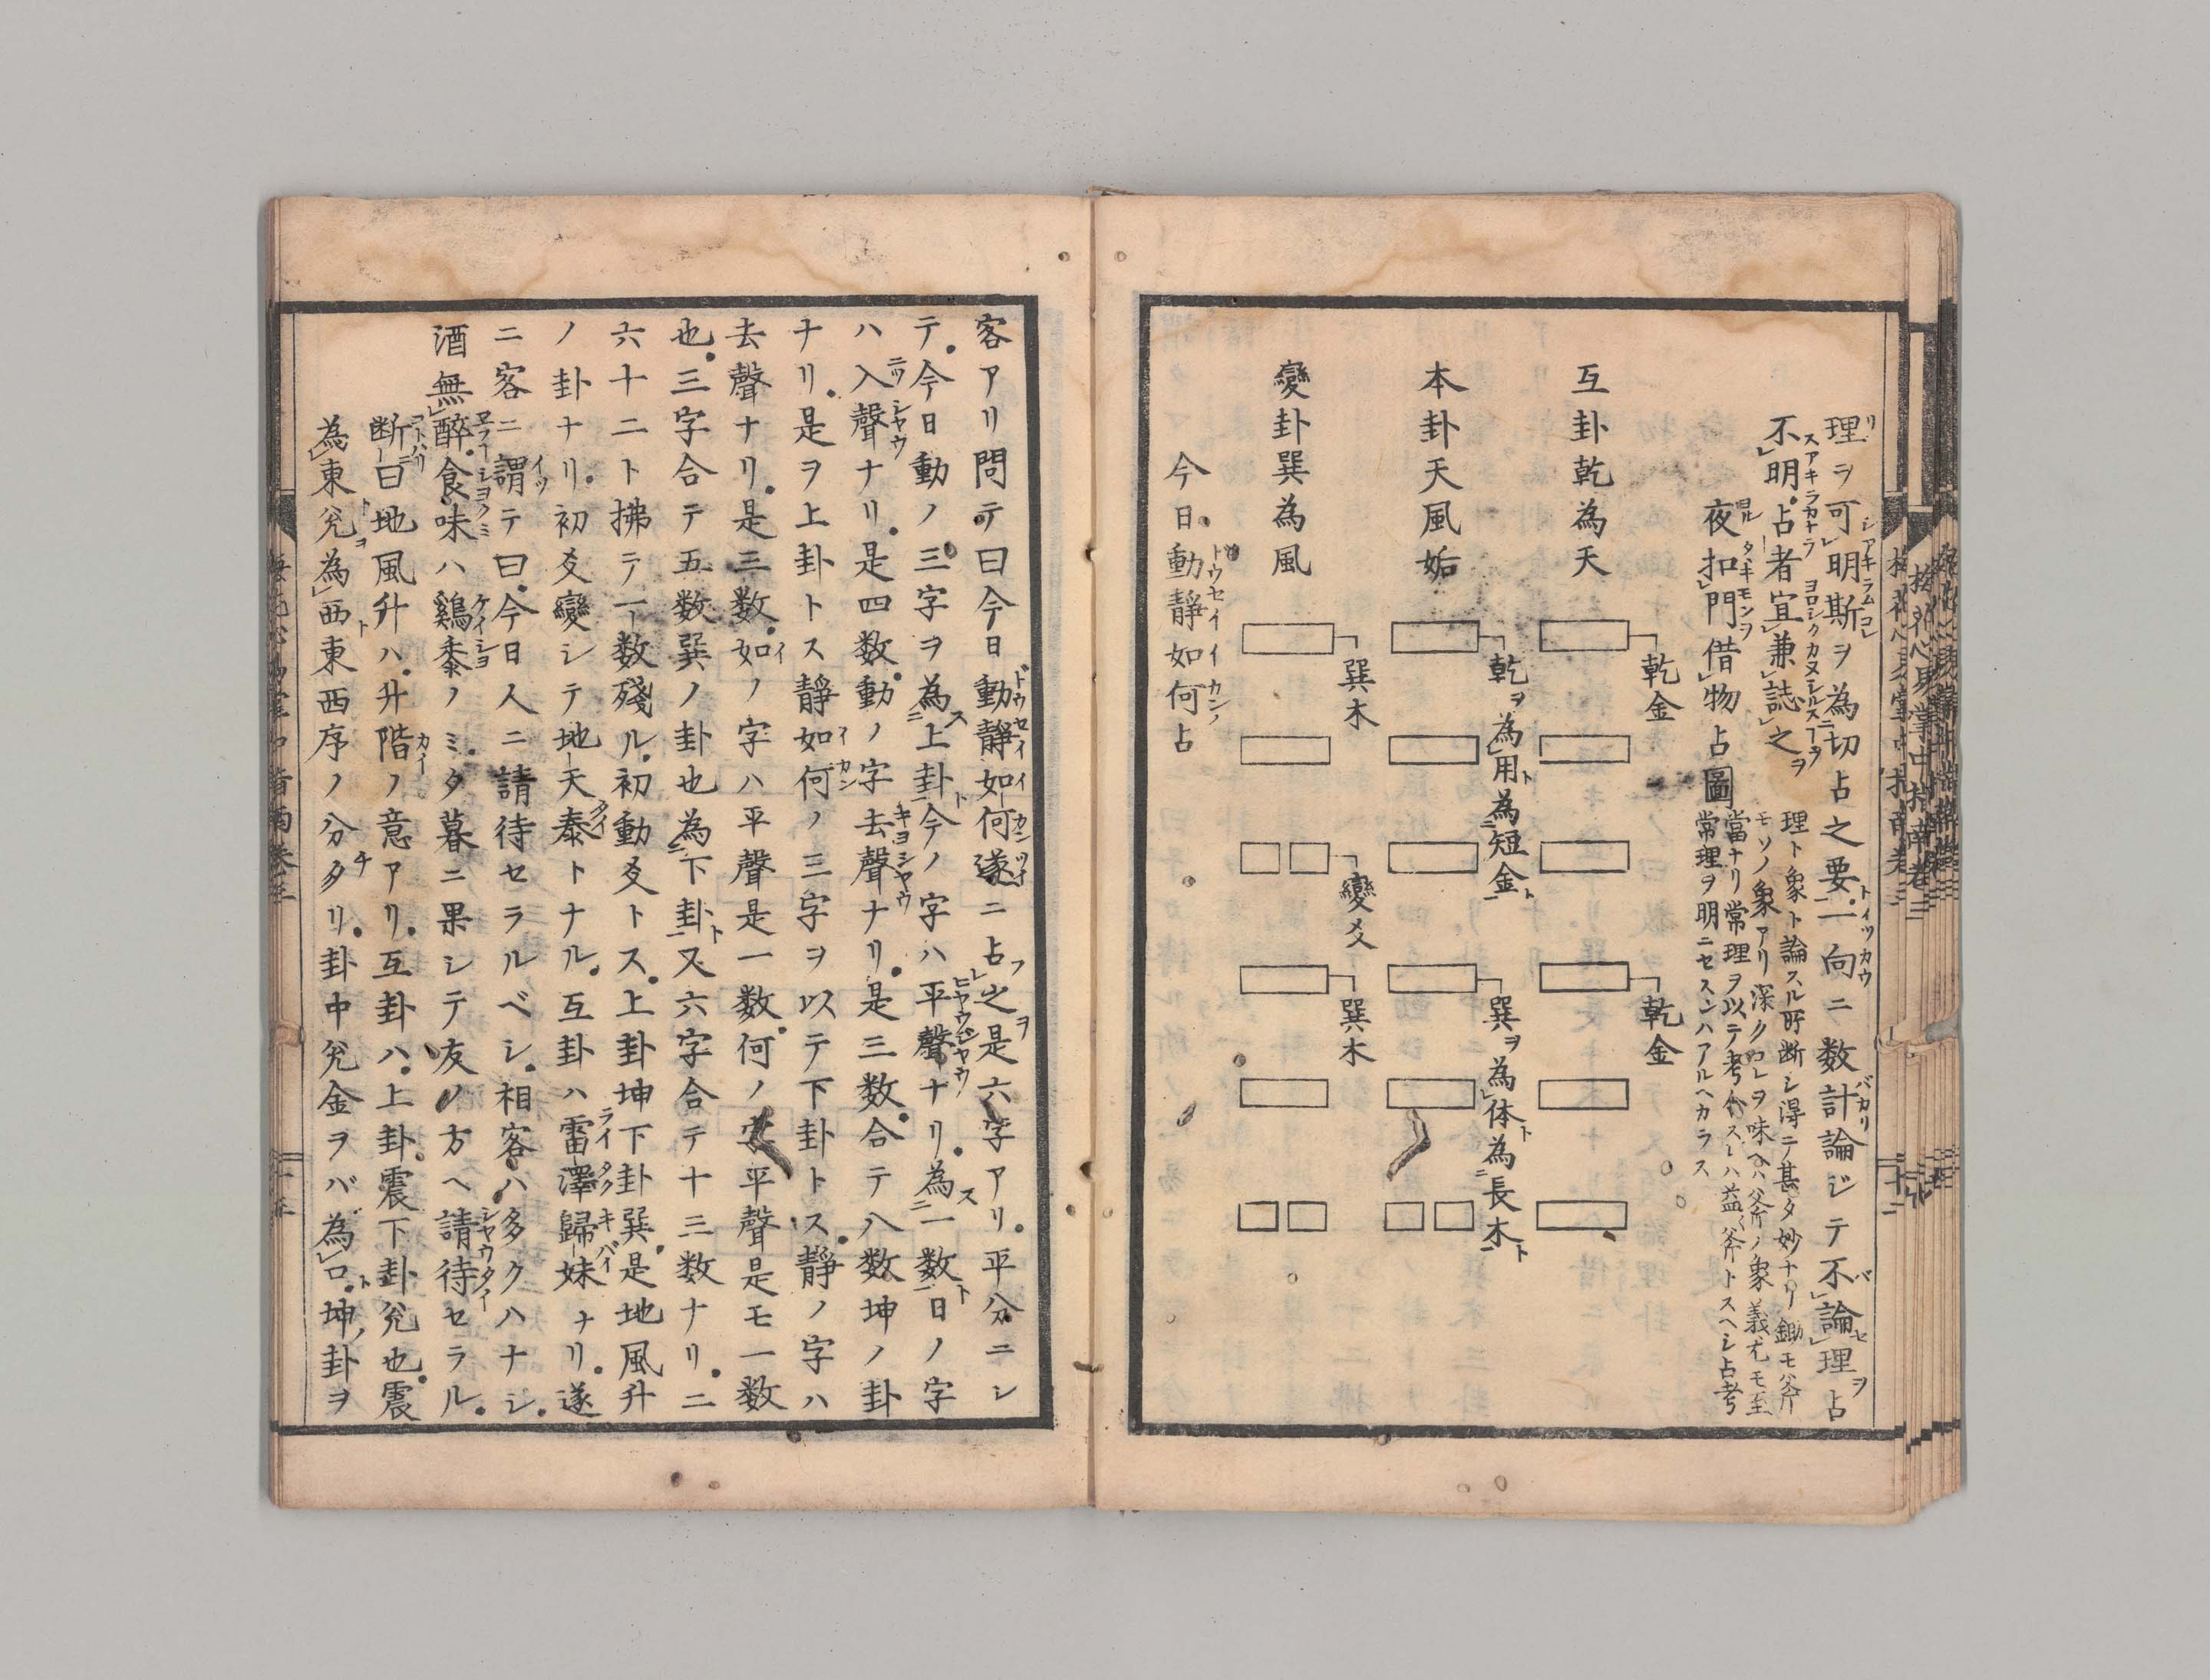 理ヲ可明斯ヲ為切占之要一向ニ数計論ジテ不論理占
不明占者宜兼誌之
理ト象ト論スル所断シ得テ甚タ妙ナリ鋤モ斧
モソノ象アリ深クコレヲ味ヘハ斧ノ象義尤モ至
當ナリ常理ヲ以テ考ハ益斧トスヘシ占者
常理ヲ明ニセスンハアルヘカラス
夜扣門借物占圖
互卦乾為天
乾金
乾金
本卦天風姤
乾ヲ為用為短金
巽ヲ為体為長木
變卦巽為風
巽木
變爻
巽木
今日動靜如何占
客アリ問テ曰今日動靜如何遂ニ占之是六字アリ平分ニシ
テ今日動ノ三字ヲ為上卦今ノ字ハ平聲ナリ為一数日ノ字
ハ入聲ナリ是四数動ノ字去聲ナリ是三数合テ八数坤ノ卦
ナリ是ヲ上卦トス靜如何ノ三字ヲ以テ下卦トス靜ノ字ハ
去聲ナリ是三数如ノ字ハ平聲是一数何ノ字平聲是モ一数
也三字合テ五数巽ノ卦也為下卦又六字合テ十三数ナリ二
六十二ト拂テ一数殘ル初動爻トス上卦坤下卦巽是地風升
ノ卦ナリ初爻變シテ地天泰トナル互卦ハ雷澤歸妹ナリ遂
ニ客ニ謂テ曰今日人ニ請待セラルベシ相客ハ多クハナシ
酒無醉食味ハ鷄黍ノミタ暮ニ果シテ友ノ方ヘ請待セラル
断曰地風升ハ升階ノ意アリ互卦ハ上卦震下卦兊也震
為東兊為西東西序ノ分タリ卦中兊金ヲバ為口坤ノ卦ヲ